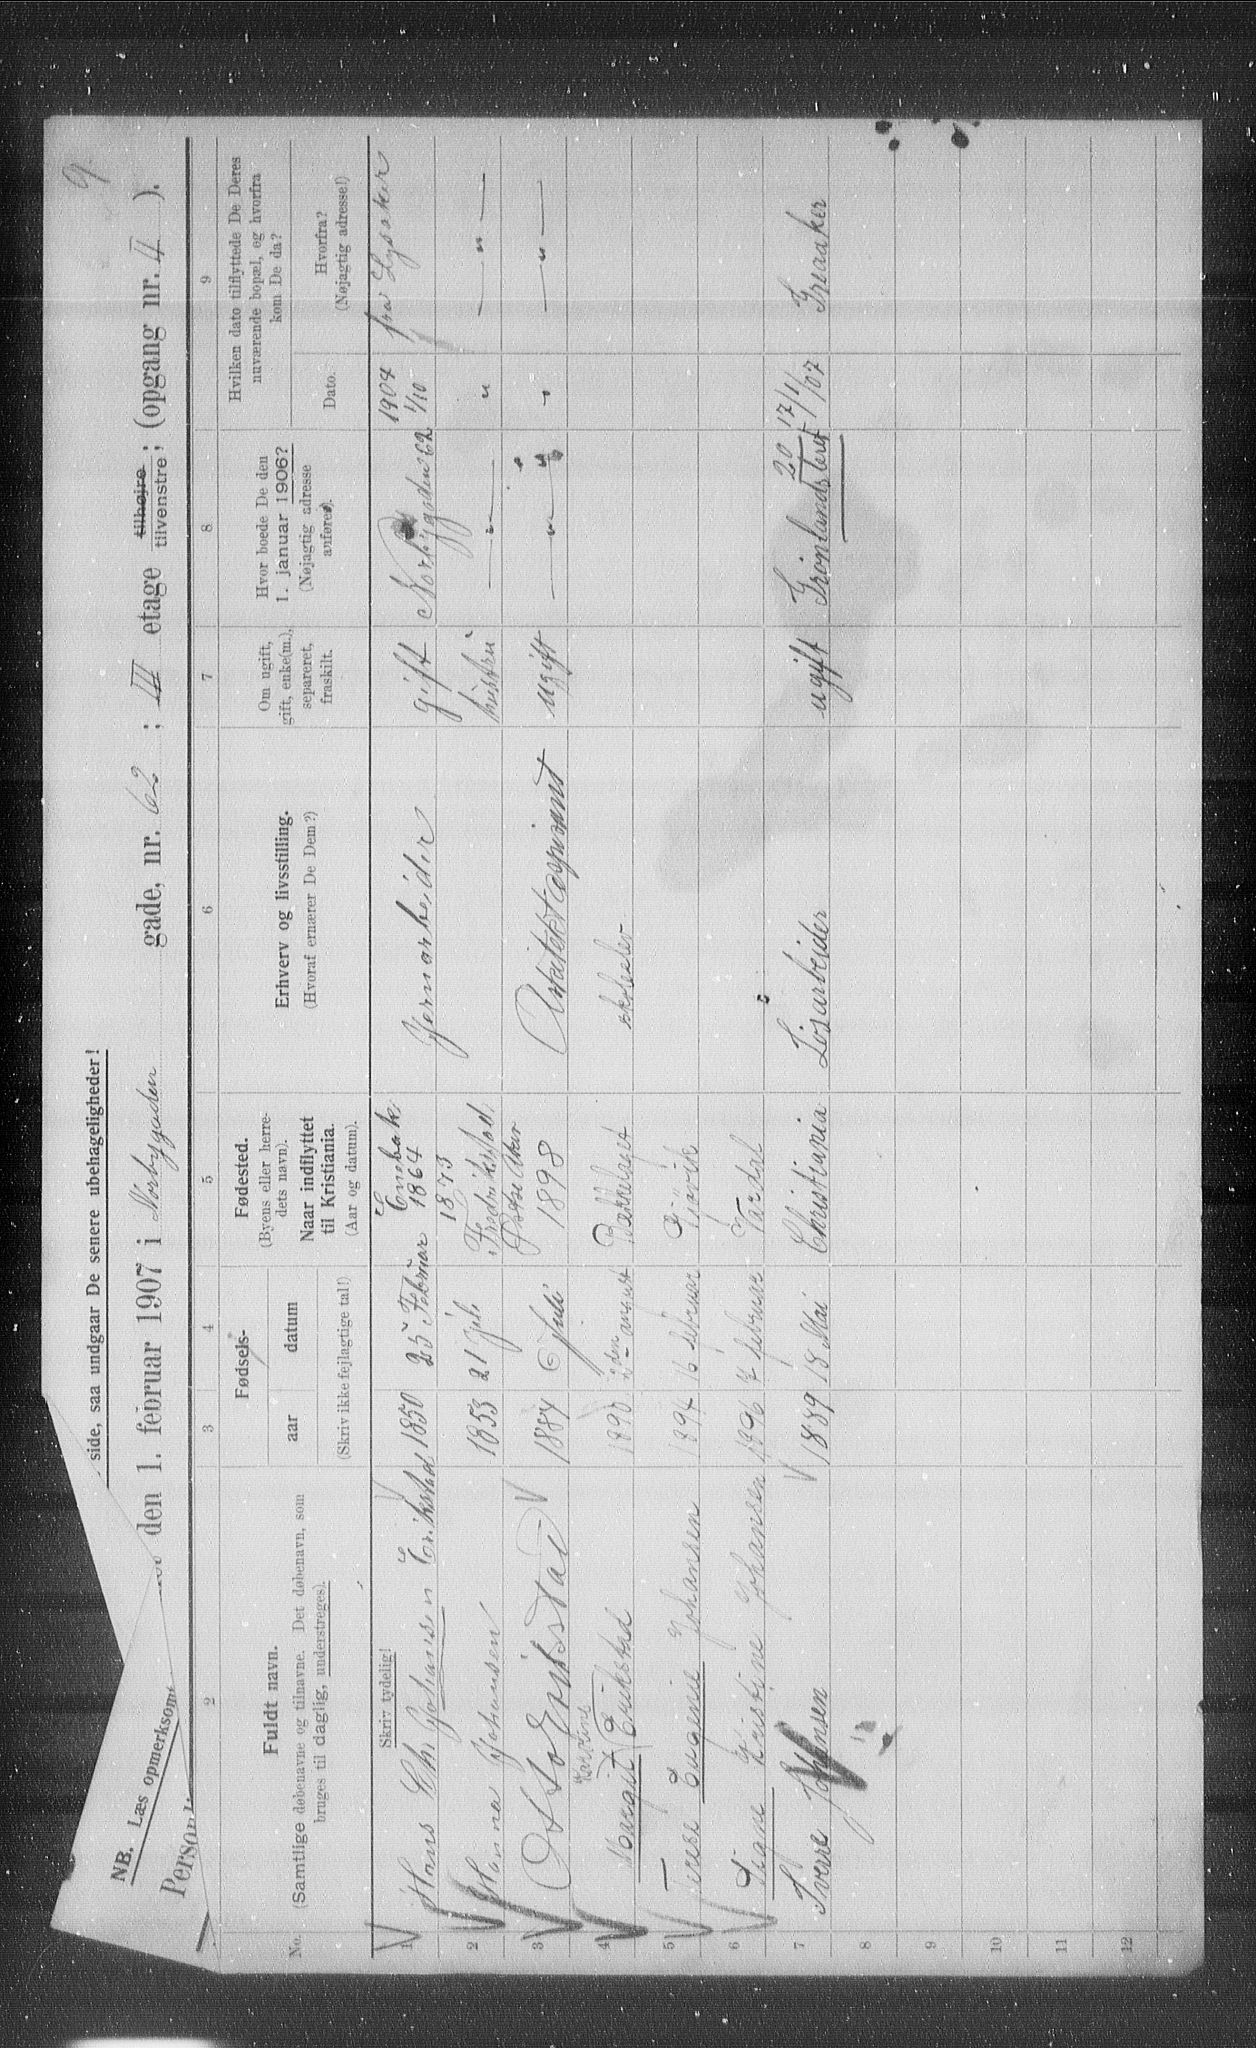 9
side, saa undgaar De senere ubehageligheder!
NB. Læs opmerksom
Personli
den 1. februar 1907 i Norbygaden gade, nr. 62 ; III etage tilhøjre tilvenstre ; (opgang nr. II ).
1 2 3 4 5 6 7 8 9
No.
Fuldt navn.
(Samtlige døbenavne og tilnavne. Det døbenavn, som
bruges til daglig, understreges).
Fødsels-
aar datum
(Skriv ikke fejlagtige tal!)
Fødested.
(Byens eller herre-
dets navn).
Naar indflyttet
til Kristiania.
(Aar og datum).
Erhverv og livsstilling.
(Hvoraf ernærer De Dem?)
Om ugift,
gift, enke(m.),
separeret,
fraskilt.
Hvor boede De den
1. januar 1906?
(Nøjagtig adresse
anføres).
Hvilken dato tilflyttede De Deres
nuværende bopæl, og hvorfra
kom De da?
Dato.
Hvorfra?
(Nøjagtig adresse!)
Skriv tydelig!
1 Hans Chr. Johansen Erikstad 1850 25 Februar Enebak 1864 Jernarbeider gift Norbygaden 62 1904 1/10 fra Lysaker
2 Hanna Johansen 1853 21 Juli 1873 Fredrikstad hustru — " — " — " —
3 Otto Erikstad 1884 6 Juli Østre Aker 1898 ugift — " — " — " —
4 Margit Erikstad 1890 august Bækkelaget skoleelev
5 Eugenie Johansen 1894 16 februar Gjøvik
6 Signe Kristine Johansen 1896 februar Vardal
7 Sverre Johansen 1889 18 Mai Christiania Løsarbeider ugift Grønlandsleret 20 17/1/07 Greaaker
8
9
10
11
12